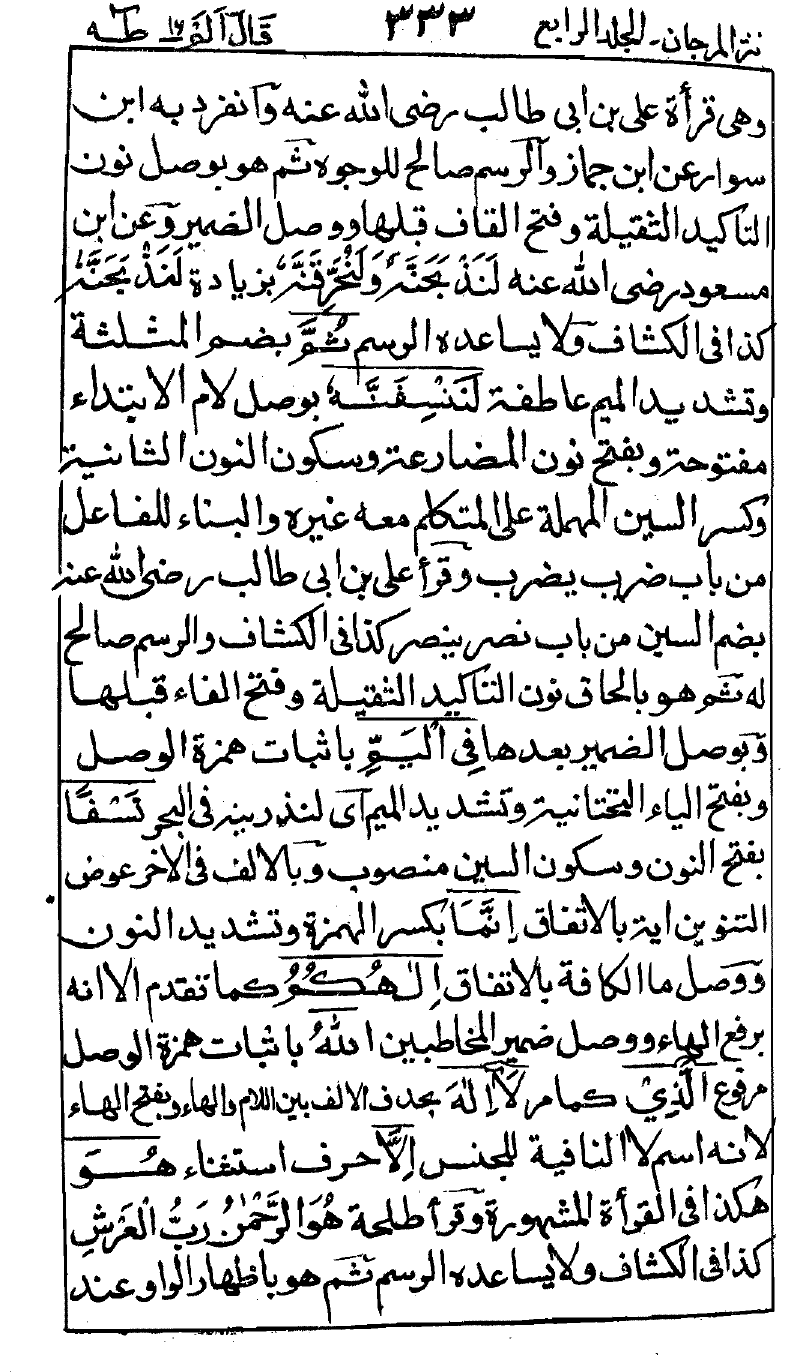 نثر المرجان۔ المجلد الرابع ٣٣٣ قال الم ١٦ طه
وهى قرأة على بن ابى طالب رضى الله عنه وانفرد به ابن
سوار عن ابن جماز والرسم صالح للوجوه ثم هو بوصل نون
التاكيد الثقيلة وفتح القاف قبلها ووصل الضمير وعن ابن
مسعود رضى الله عنه لَنَذْبَحَنَّهٗ وَلَنُحَرِّقَنَّهٗ بزيادة لَنَذْبَحَنَّهٗ
كذا فى الكشاف ولا يساعده الرسم ثُمَّ بضم المثلثة
وتشديد الميم عاطفة لَنَنْسِفَنَّهٗ بوصل لام الابتداء
مفتوحة وبفتح نون المضارعة وسكون النون الثانية
وكسر السين المهملة على المتكلم معه غيره والبناء للفاعل
من باب ضرب يضرب وقرأ على بن ابى طالب رضى الله عنه
بضم السين من باب نصر ينصر كذا فى الكشاف والرسم صالح
له ثم هو بالحاق نون التاكيد الثقيلة وفتح الفاء قبلها
وبوصل الضمير بعدها فِى الْيَمِّ باثبات همزة الوصل
وبفتح الياء التحتانية وتشديد الميم اى لنذرينه فى البحر نَسْفًا
بفتح النون وسكون السين منصوب وبالالف فى الاخر عوض
التنوين اية بالاتفاق اِنَّمَا بكسر الهمزة وتشديد النون
ووصل ما الكافة بالاتفاق اِلٰهُكُمُ كما تقدم الا انه
برفع الهاء ووصل ضمير المخاطبين اللهُ باثبات همزة الوصل
مرفوع الَّذِىْ كما مر لَآ اِلٰهَ بحذف الالف بين اللام والهاء وبفتح الهاء
لانه اسم لا النافية للجنس اِلَّا حرف استثناء هُوَ
هكذا فى القرأة المشهورة وقرأ طلحة هُوَ الرَّحْمٰنُ رَبُّ الْعَرْشِ
كذا فى الكشاف ولا يساعده الرسم ثم هو باظهار الواو عند